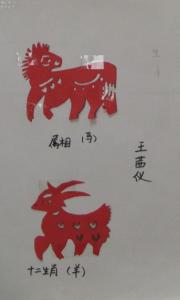 属相（马）
王苗仪
十二生肖（羊）